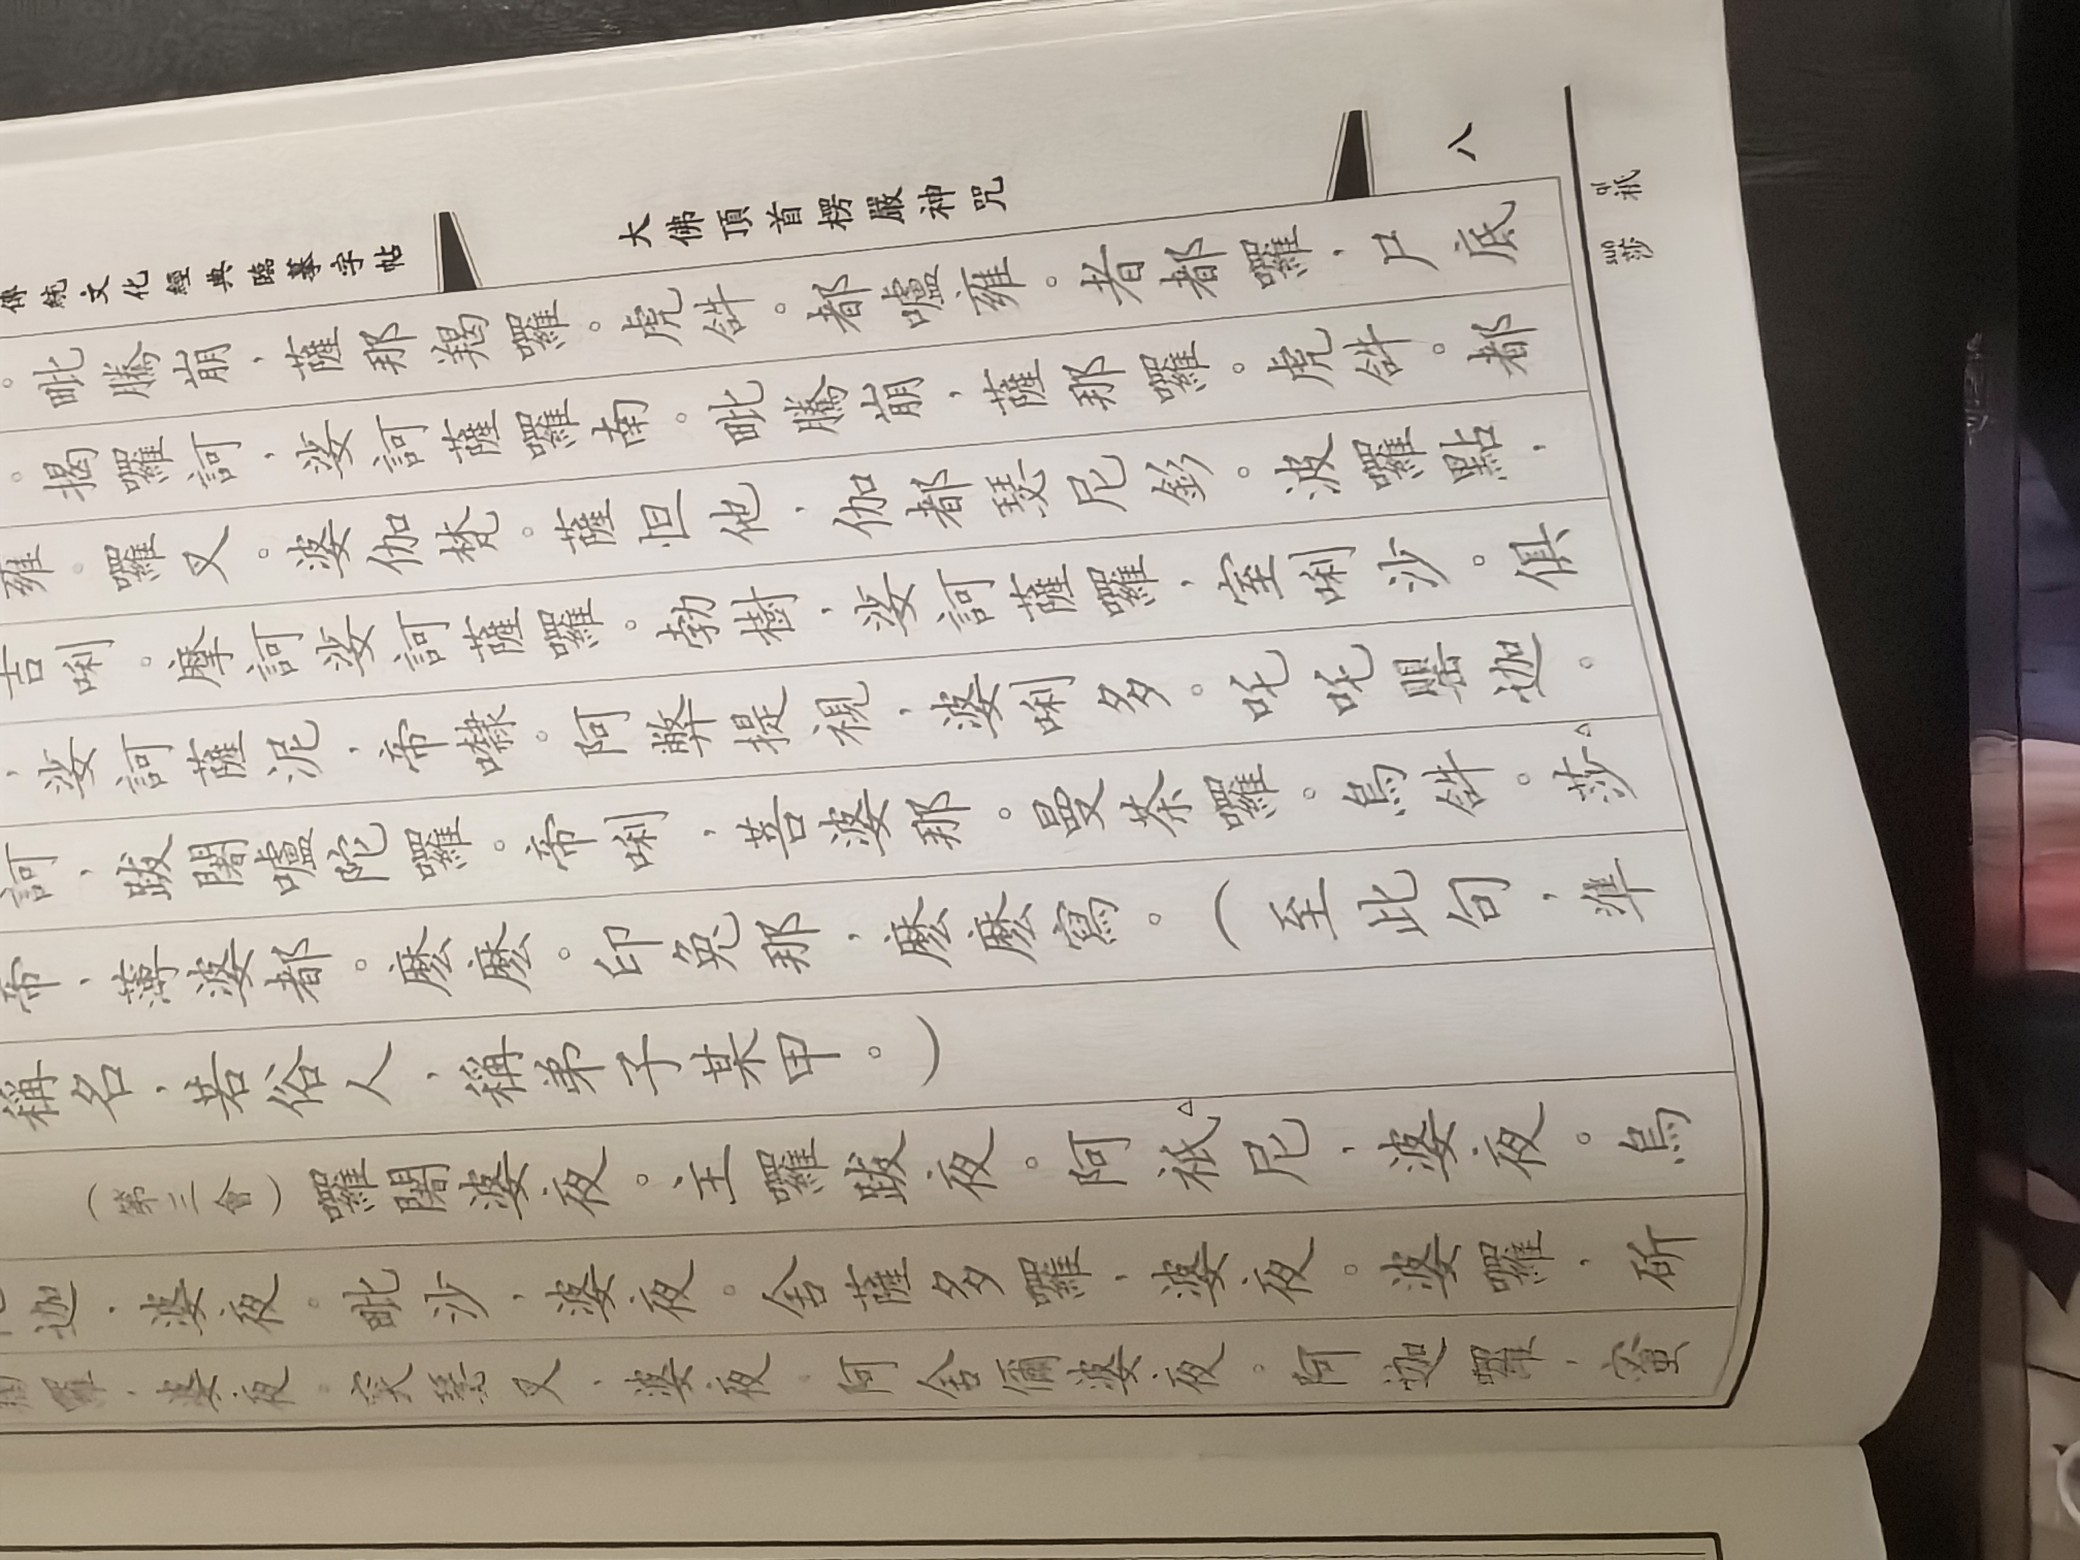 傳統文化經典臨摹字帖
大佛頂首楞嚴神咒
八
。毗騰崩，薩那羯囉。虎𤙖。都嚧雍。者都囉，尸底
。揭囉訶，娑訶薩囉南。毗騰崩，薩那囉。虎𤙖。都
雍。囉叉。婆伽梵。薩怛他，伽都瑟尼釤。波囉點，
吉唎。摩訶娑訶薩囉。勃樹，娑訶薩囉，室唎沙。俱
，娑訶薩泥，帝㘑。阿弊提視，婆唎多。吒吒甖迦。
訶，跋闍嚧陀囉。帝唎，菩婆那。曼茶囉。烏𤙖。莎
帝，薄婆都。麼麼。印兔那，麼麼寫。（至此句，準
稱名，若俗人，稱弟子某甲。）
（第三會）囉闍婆夜。主囉跋夜。阿祇尼，婆夜。烏
迦，婆夜。毗沙，婆夜。舍薩多囉，婆夜。婆囉，斫
囉，婆夜。突瑟叉，婆夜。阿舍儞婆夜。阿迦囉，蜜
qí 祇
suō 莎